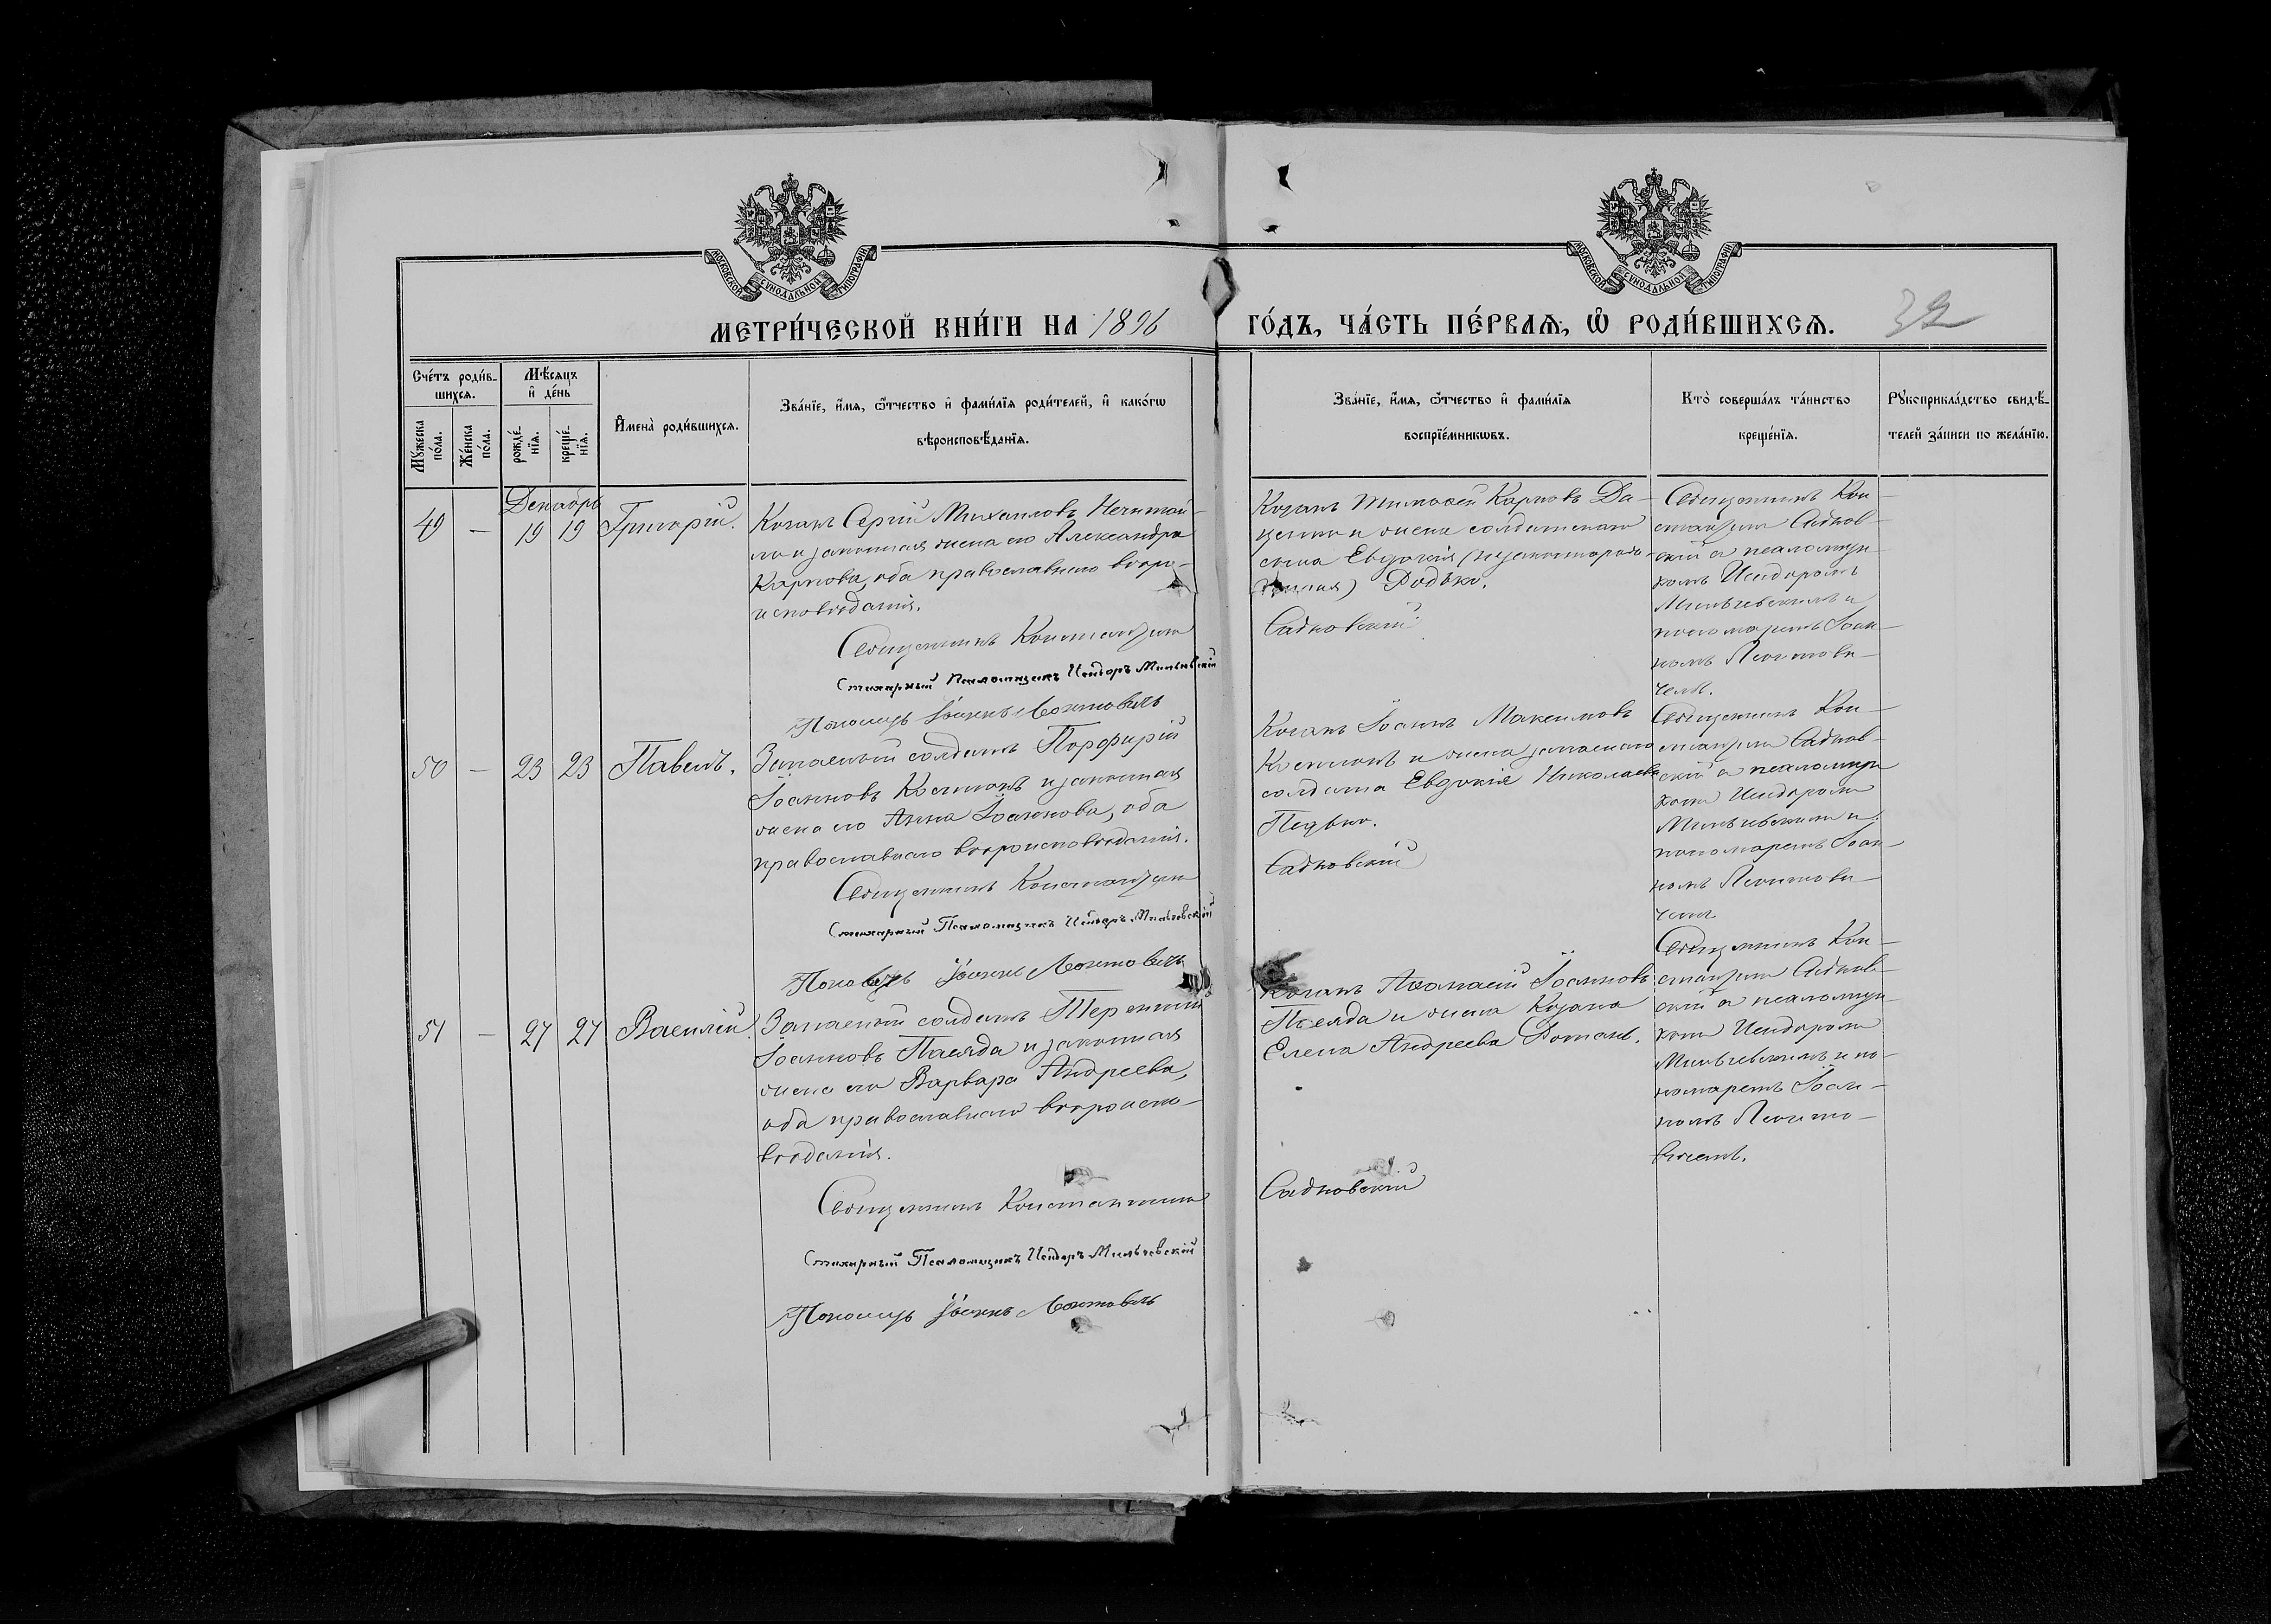 МОСКОВСКОЙ СѴНОДАЛЬНОЙ ТИПОГРАФІИ
МОСКОВСКОЙ СѴНОДАЛЬНОЙ ТИПОГРАФІИ
МЕТРИ́ЧЕСКОЙ КНИ́ГИ НА 1896
ГО́ДЪ, ЧА́СТЬ ПЕ́РВАѦ, Ѡ҆ РОДИ́ВШИХСѦ.
32
Сче́тъ роди́в-
шихсѧ.
Мꙋ́жеска
по́ла.
Же́нска
по́ла.
Мѣ́сѧцъ
и҆ де́нь
рожде́-
нїѧ.
креще́-
нїѧ.
И҆мена̀ роди́вшихсѧ.
Зва́нїе, и҆́мѧ, ѻ҆́тчество и҆ фами́лїѧ роди́телей, и҆ како́гѡ
вѣроисповѣ́данїѧ.
Зва́нїе, и҆́мѧ, ѻ҆́тчество и҆ фами́лїѧ
воспрїе́мникѡвъ.
Кто̀ соверша́лъ та́инство
креще́нїѧ.
Рꙋкоприкла́дство свидѣ́-
телей за́писи по жела́нїю.
Декабрь
49 — 19 19 Григорій.
Козакъ Сергій Михаиловъ
и законная жена его Александра
Карпова, оба православнаго вѣро-
исповѣданія.
Священникъ Константинъ
Стихарный Псаломщикъ Исидоръ Мильчевскій
Пономарь Іоаннъ Леонтовичъ
Козакъ Тимофей Карповъ Да-
ценко и жена солдатскаго
сына Евдокія (незаконнорож-
денная)
Садковскій
Священникъ Кон-
стантинъ Садков-
скій съ псаломщи-
комъ Исидоромъ
Мильчевскимъ и
пономаремъ Іоан-
номъ Леонтови-
чемъ.
50 — 23 23 Павелъ.
Запасный солдатъ Порфирій
Іоанновъ Костюкъ и законная
жена его Анна Іоаннова, оба
православнаго вѣроисповѣданія.
Священникъ Константинъ
Стихарный Псаломщикъ Исидоръ Мильчевскій
Пономарь Іоаннъ Леонтовичъ
Козакъ Іоаннъ Максимовъ
Костюкъ и жена запаснаго
солдата Евдокія Николаева
Педько.
Садковскій
Священникъ Кон-
стантинъ Садков-
скій съ псаломщи-
комъ Исидоромъ
Мильчевскимъ и
пономаремъ Іоан-
номъ Леонтови-
чемъ
51 — 27 27 Василій.
Запасный солдатъ Терентій
Іоанновъ Паляда и законная
жена его Варвара Андреева,
оба православнаго вѣроиспо-
вѣданія.
Священникъ Константинъ
Стихарный Псаломщикъ Исидоръ Мильчевскій
Пономарь Іоаннъ Леонтовичъ
Козакъ Аѳанасій Іоанновъ
Паляда и жена Козака
Елена Андреева
Садковскій
Священникъ Кон-
стантинъ Садков-
скій съ псаломщи-
комъ Исидоромъ
Мильчевскимъ и по-
номаремъ Іоан-
номъ Леонто-
вичемъ.